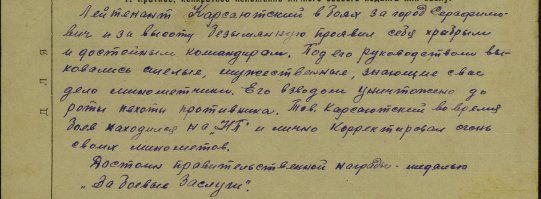 Лейтенант Карсаютский в боях за город Серафимо-
вич и за высоту Безымянную проявил себя храбрым
и достойным командиром. Под его руководством вы-
ковались смелые, мужественные, знающие свое
дело минометчики. Его взводом уничтожено до
роты пехоты противника. Тов. Карсаютский во время
боев находился на "НП" и лично корректировал огонь
своих минометов.
Достоин правительственной награды - медалью
"За боевые заслуги".
Д Л Я